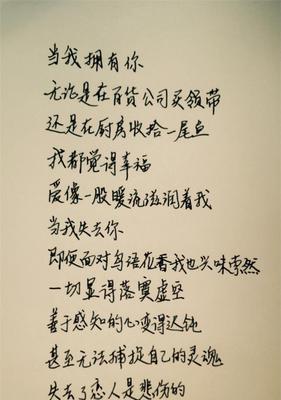 当我拥有你
无论是在百货公司买领带
还是在厨房收拾一尾鱼
我都觉得幸福
爱像一股暖流滋润着我
当我失去你
即便面对鸟语花香我也兴味索然
一切显得落寞虚空
善于感知的心变得迟钝
甚至无法捕捉自己的灵魂
失去了恋人是悲伤的